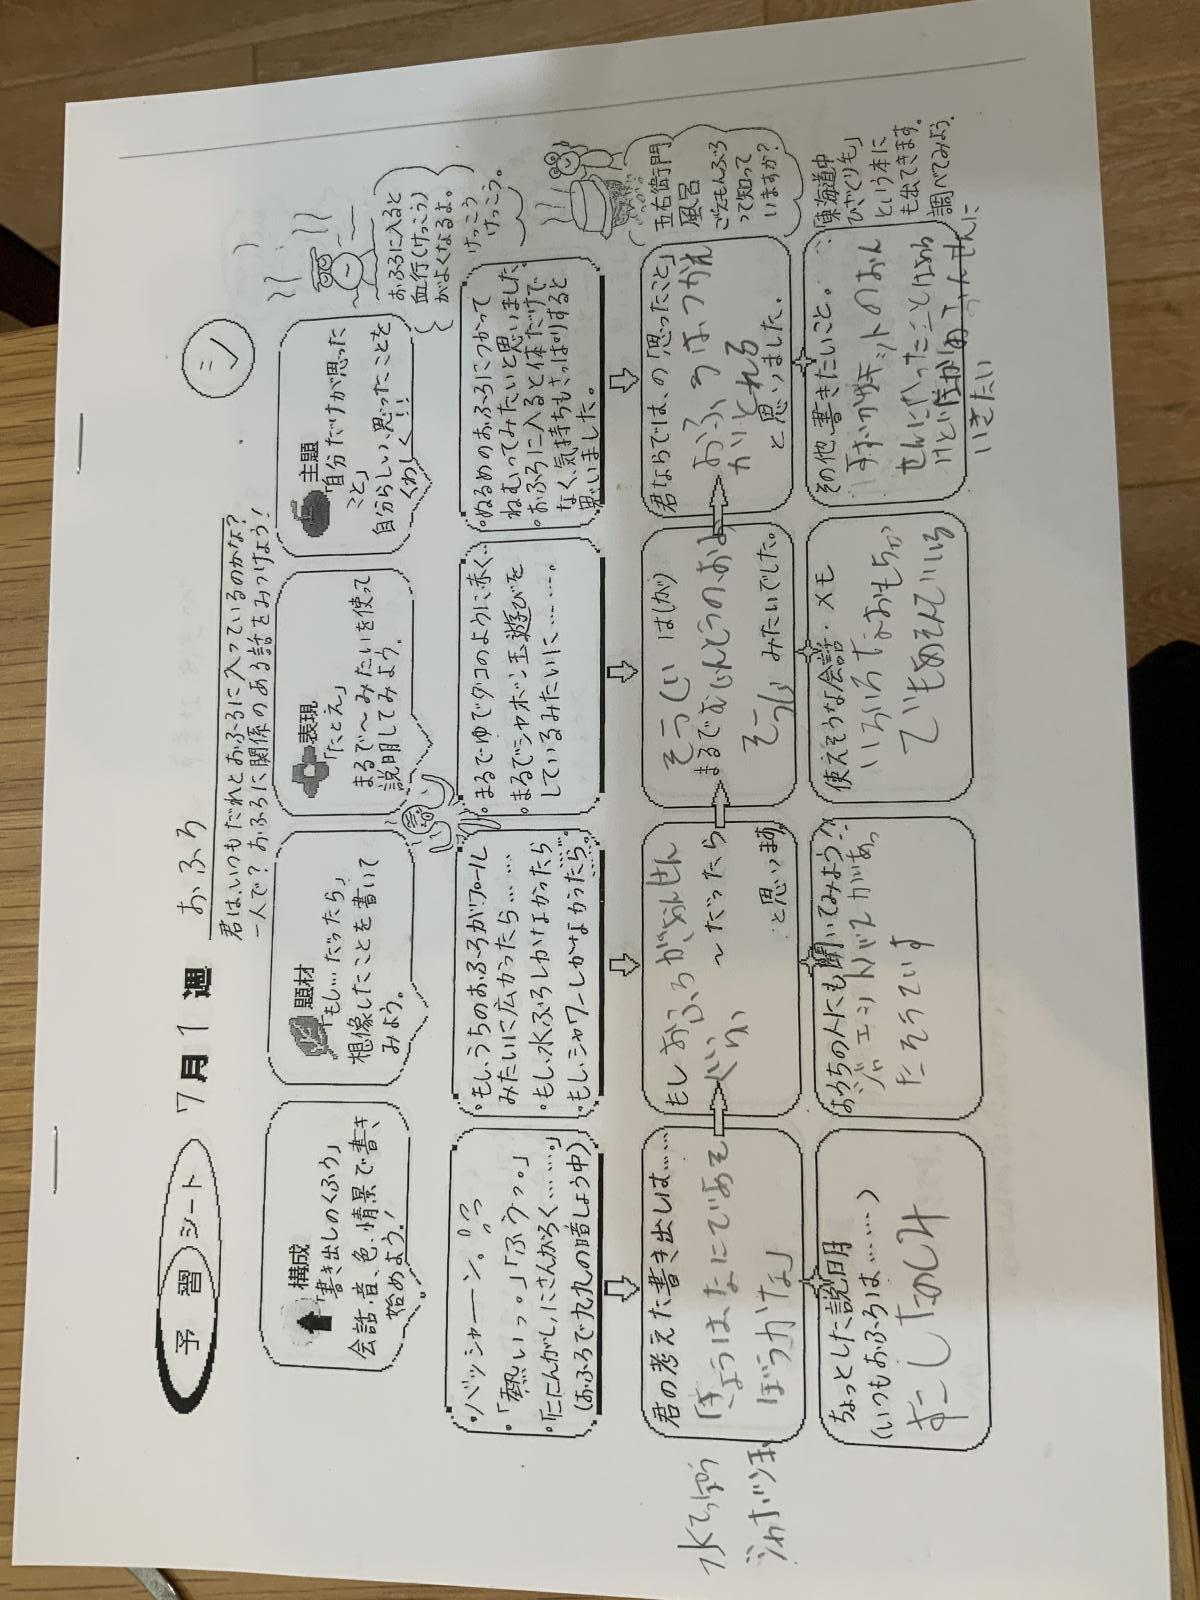 予習シート 7月1週 おふろ
シ
君は、いつもだれとおふろに入っているのかな?
一人で? おふろに関係のある話をみつけよう!
構成
「書き出しのくふう」
会話、音、色、情景で書き
始めよう!
題材
「もし…だったら」
想像したことを書いて
みよう。
表現
「たとえ」
まるで〜みたいを使って
説明してみよう。
主題
「自分だけが思った
こと」
自分らしい、思ったことを
くわしく!!
おふろに入ると
血行(けっこう)
がよくなるよ。
けっこう
けっこう。
・バッシャーン。
・「熱いっ。」「ふうっ。」
・「にたんがし、にさんがろく……。」
(おふろで九九の暗しょう中)
・もし、うちのおふろがプール
みたいに広かったら……
・もし、水ぶろしかなかったら
・もし、シャワーしかなかったら。……
・まるでゆでダコのように赤く…
・まるでシャボン玉遊びを
しているみたいに……。
・ぬるめのおふろにつかって
ねむってみたいと思いました。
・おふろに入ると体だけで
なく、気持ちもさっぱりすると
思いました。
五右衛門
風呂
ごえもんぶろ
って知って
いますか?
君の考えた書き出しは……
「きょうは、なにであそ
ぼうかな」
水でっぽう
シャボン玉
もしおふろが、おんせん
〜だったら
いい
と思います。
そうじ
まるで
そうじ みたいでした。
君ならでは、の「思ったこと」
おふろは、つかれ
がとれる
と思いました。
「東海道中
ひざくり毛」
という本に
も出てきます。
調べてみよう。
ちょっとした説明
(いつもおふろは……)
すこしたのしみ
おうちの人にも聞いてみよう!
ジェットバスがあっ
たそうです
使えそうな会話・メモ
いろいろなおもちゃ
でもあそんでいる
その他、書きたいこと。
のおん
せんに
いきたい